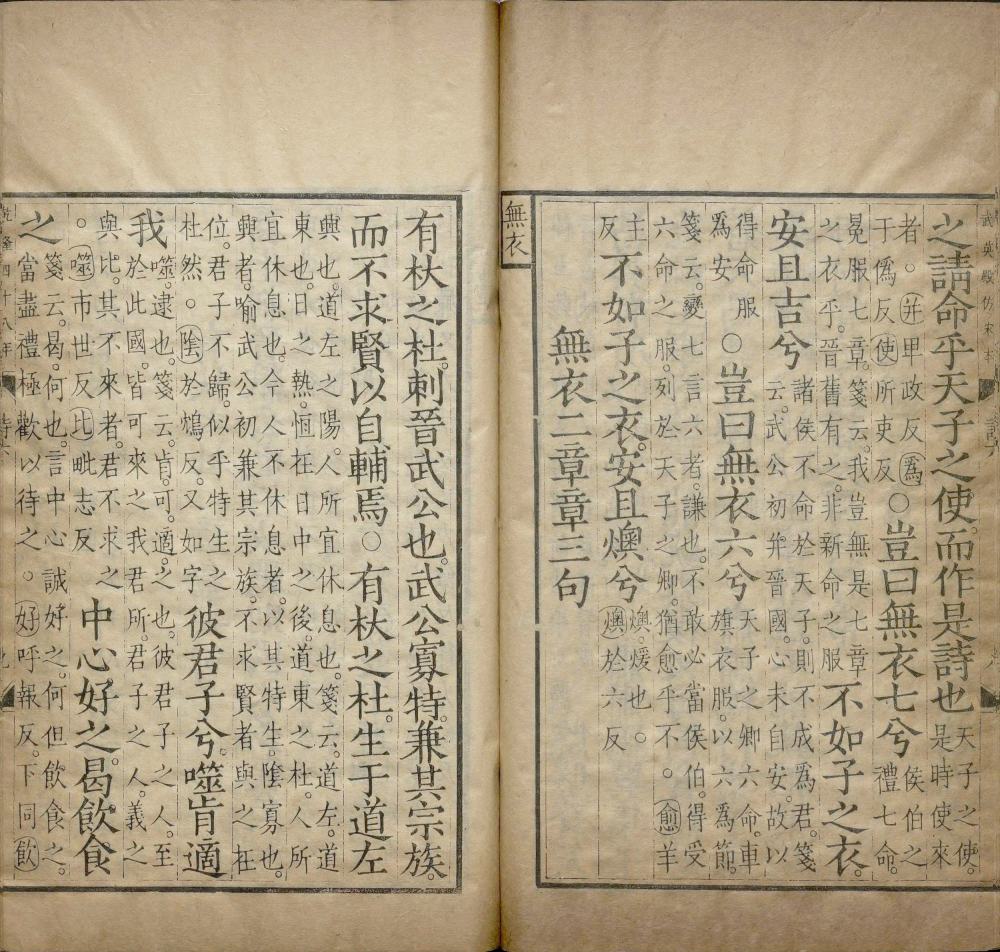 武英殿仿宋本
之請命乎天子之使。而作是詩也天子之使。是時使來
者。幷甲政反爲于僞反使所吏反○豈曰無衣七兮侯伯之禮七命。
冕服七章。箋云。我豈無是七章之衣乎。晉舊有之。非新命之服不如子之衣。
安且吉兮諸侯不命於天子。則不成爲君。箋云。武公初幷晉國。心未自安。故以
得命服爲安○豈曰無衣六兮天子之卿六命。車旗衣服。以六爲節。
箋云。變七言六者。謙也。不敢必當侯伯。得受六命之服。列於天子之卿。猶愈乎不。愈羊
主反不如子之衣。安且燠兮燠。煖也。燠於六反
無衣二章章三句
無衣
有杕之杜。刺晉武公也。武公寡特。兼其宗族。
而不求賢以自輔焉○有杕之杜。生于道左
興也。道左之陽。人所宜休息也。箋云。道左。道東也。日之熱。恒在日中之後。道東之杜。人所
宜休息也。今人不休息者。以其特生。陰寡也。興者。喻武公初兼其宗族。不求賢者與之在
位。君子不歸。似乎特生之杜然。陰於鴆反。又如字彼君子兮。噬肯適
我噬。逮也。箋云。肯。可。適。之也。彼君子之人。至於此國。皆可來之我君所。君子之人。義之
與比。其不來者。君不求之。噬市世反比毗志反中心好之。曷飲食
之箋云。曷。何也。言中心誠好之。何但飲食之。當盡禮極歡以待之。好呼報反。下同飲
乾隆四十八年